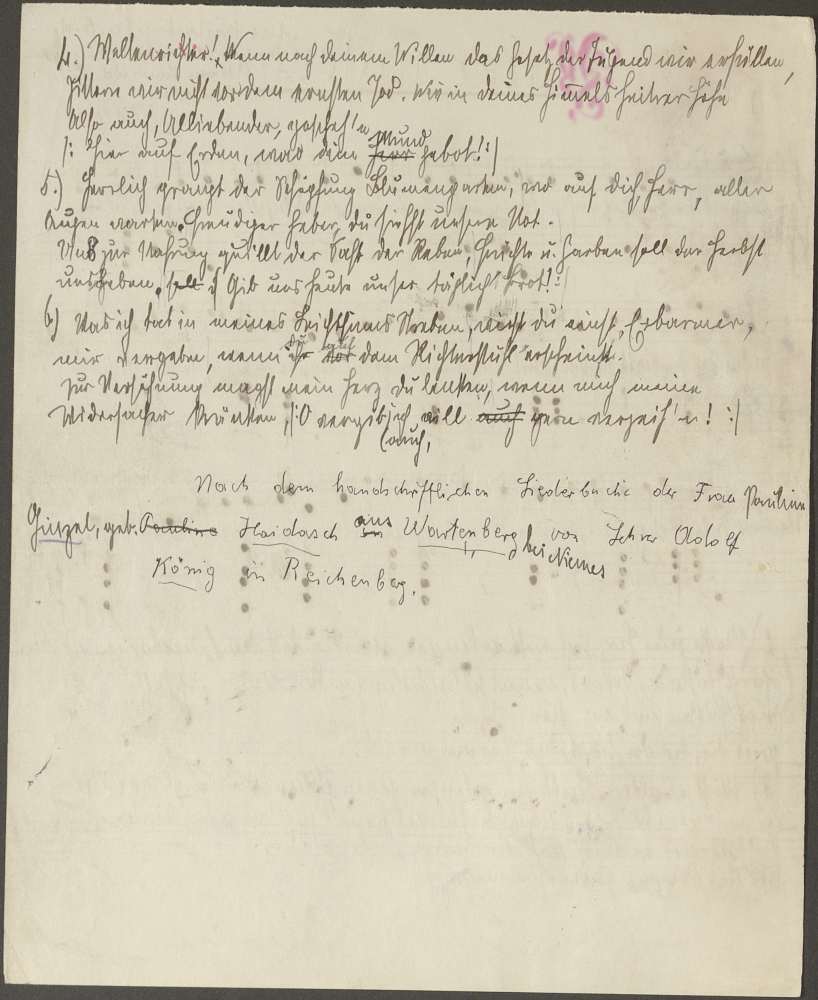 4.) Weltenrichter! Wenn nach deinem Willen das Gesetz der Tugend wir erfüllen,
Zittern wir nicht vor dem ernsten Tod. Wie in deines Himmels heitrer Höhe
Also auch, Alliebender, gescheh'n
|: Hier auf Erden, was dein Herr Mund gebot! :|
5.) Herrlich prangt der Schöpfung Blumengarten, wo auf dich, Herr, aller
Augen warten. Freudiger Geber, du siehst unsere Not.
Uns zur Nahrung quillt der Saft der Reben, Früchte u. Garben soll der Herbst
uns geben, soll |: Gib uns heute unser täglich Brot! :|
6.) Was ich tat in meines Leichtsinns Streben, wirst du einst, Erbarmer,
mir vergeben, wenn ihr du vor auf dem Richterstuhl erscheinst.
Zur Versöhnung magst mein Herz du lenken, wenn mich meine
Widersacher kränken, |: O vergib, ich will auch gern verzeih'n! :|
(auch,
Nach dem handschriftlichen Liederbuche der Frau Pauline
Ginzel, geb. Pauline Haidasch aus Wartenberg bei Niemes von Lehrer Adolf
König in Reichenberg.